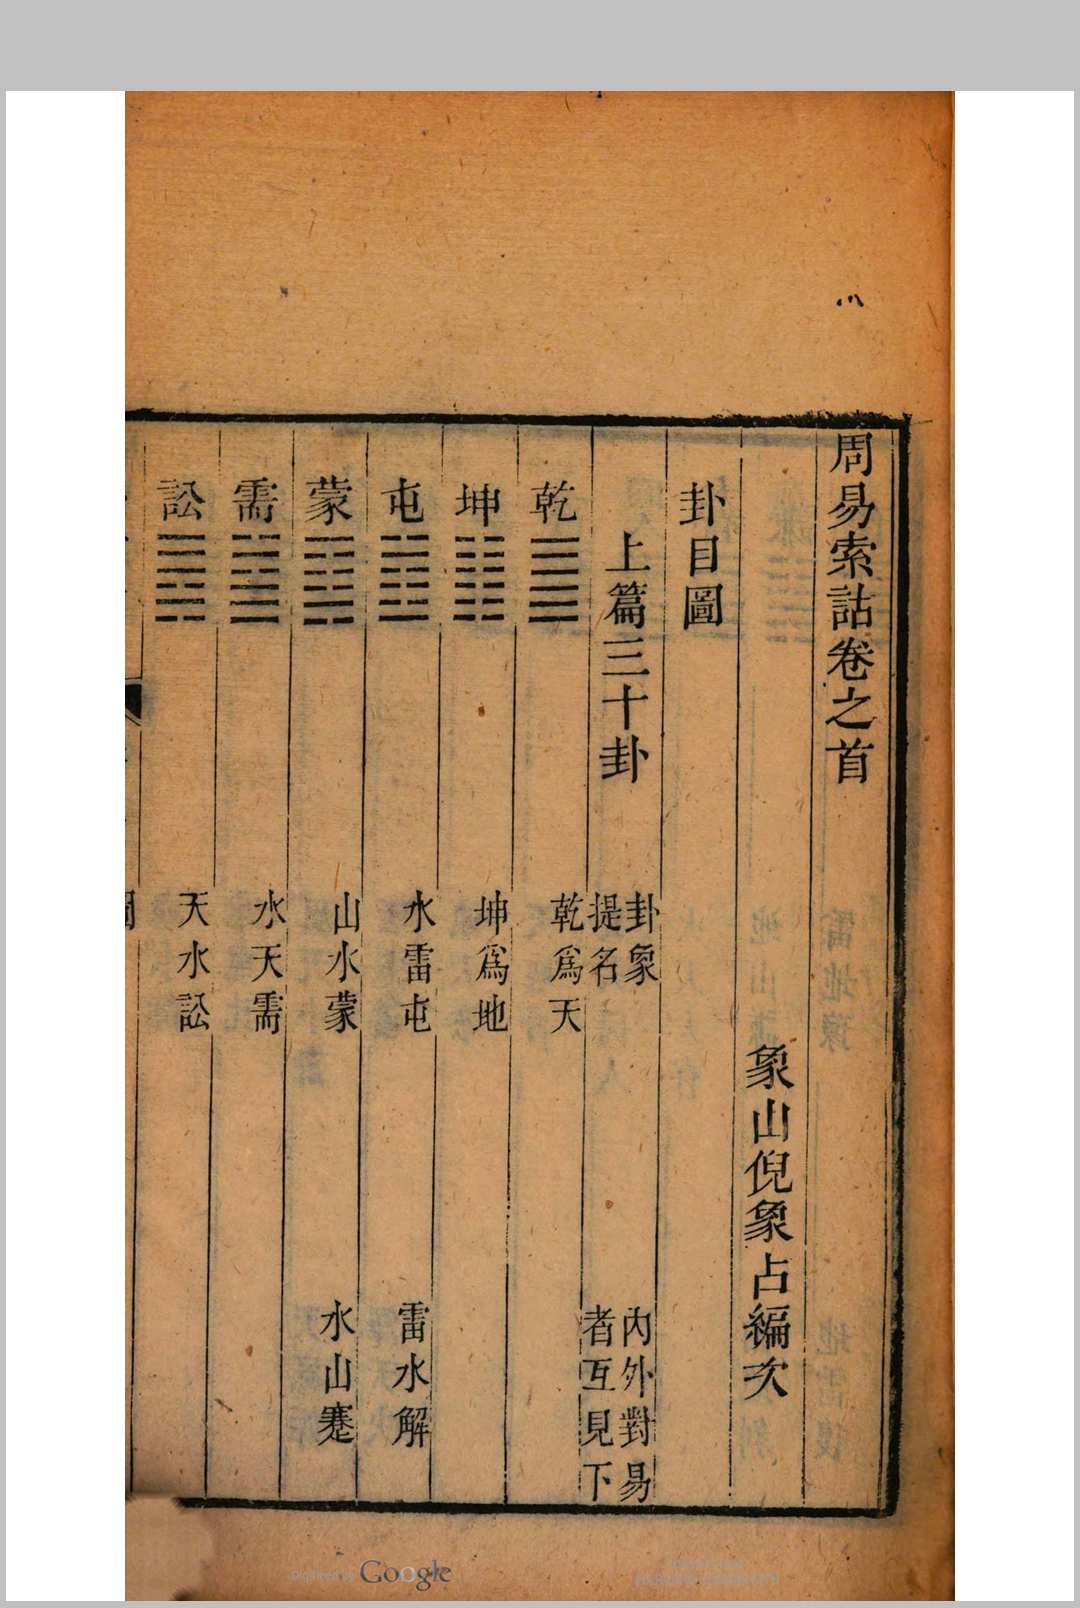 周易索詁卷之首
象山倪象占編次
卦目圖
上篇三十卦 卦象提名 內外對易者互見下
乾 ䷀ 乾爲天
坤 ䷁ 坤爲地
屯 ䷂ 水雷屯 雷水解
蒙 ䷃ 山水蒙 水山蹇
需 ䷄ 水天需
訟 ䷅ 天水訟
Digitized by Google